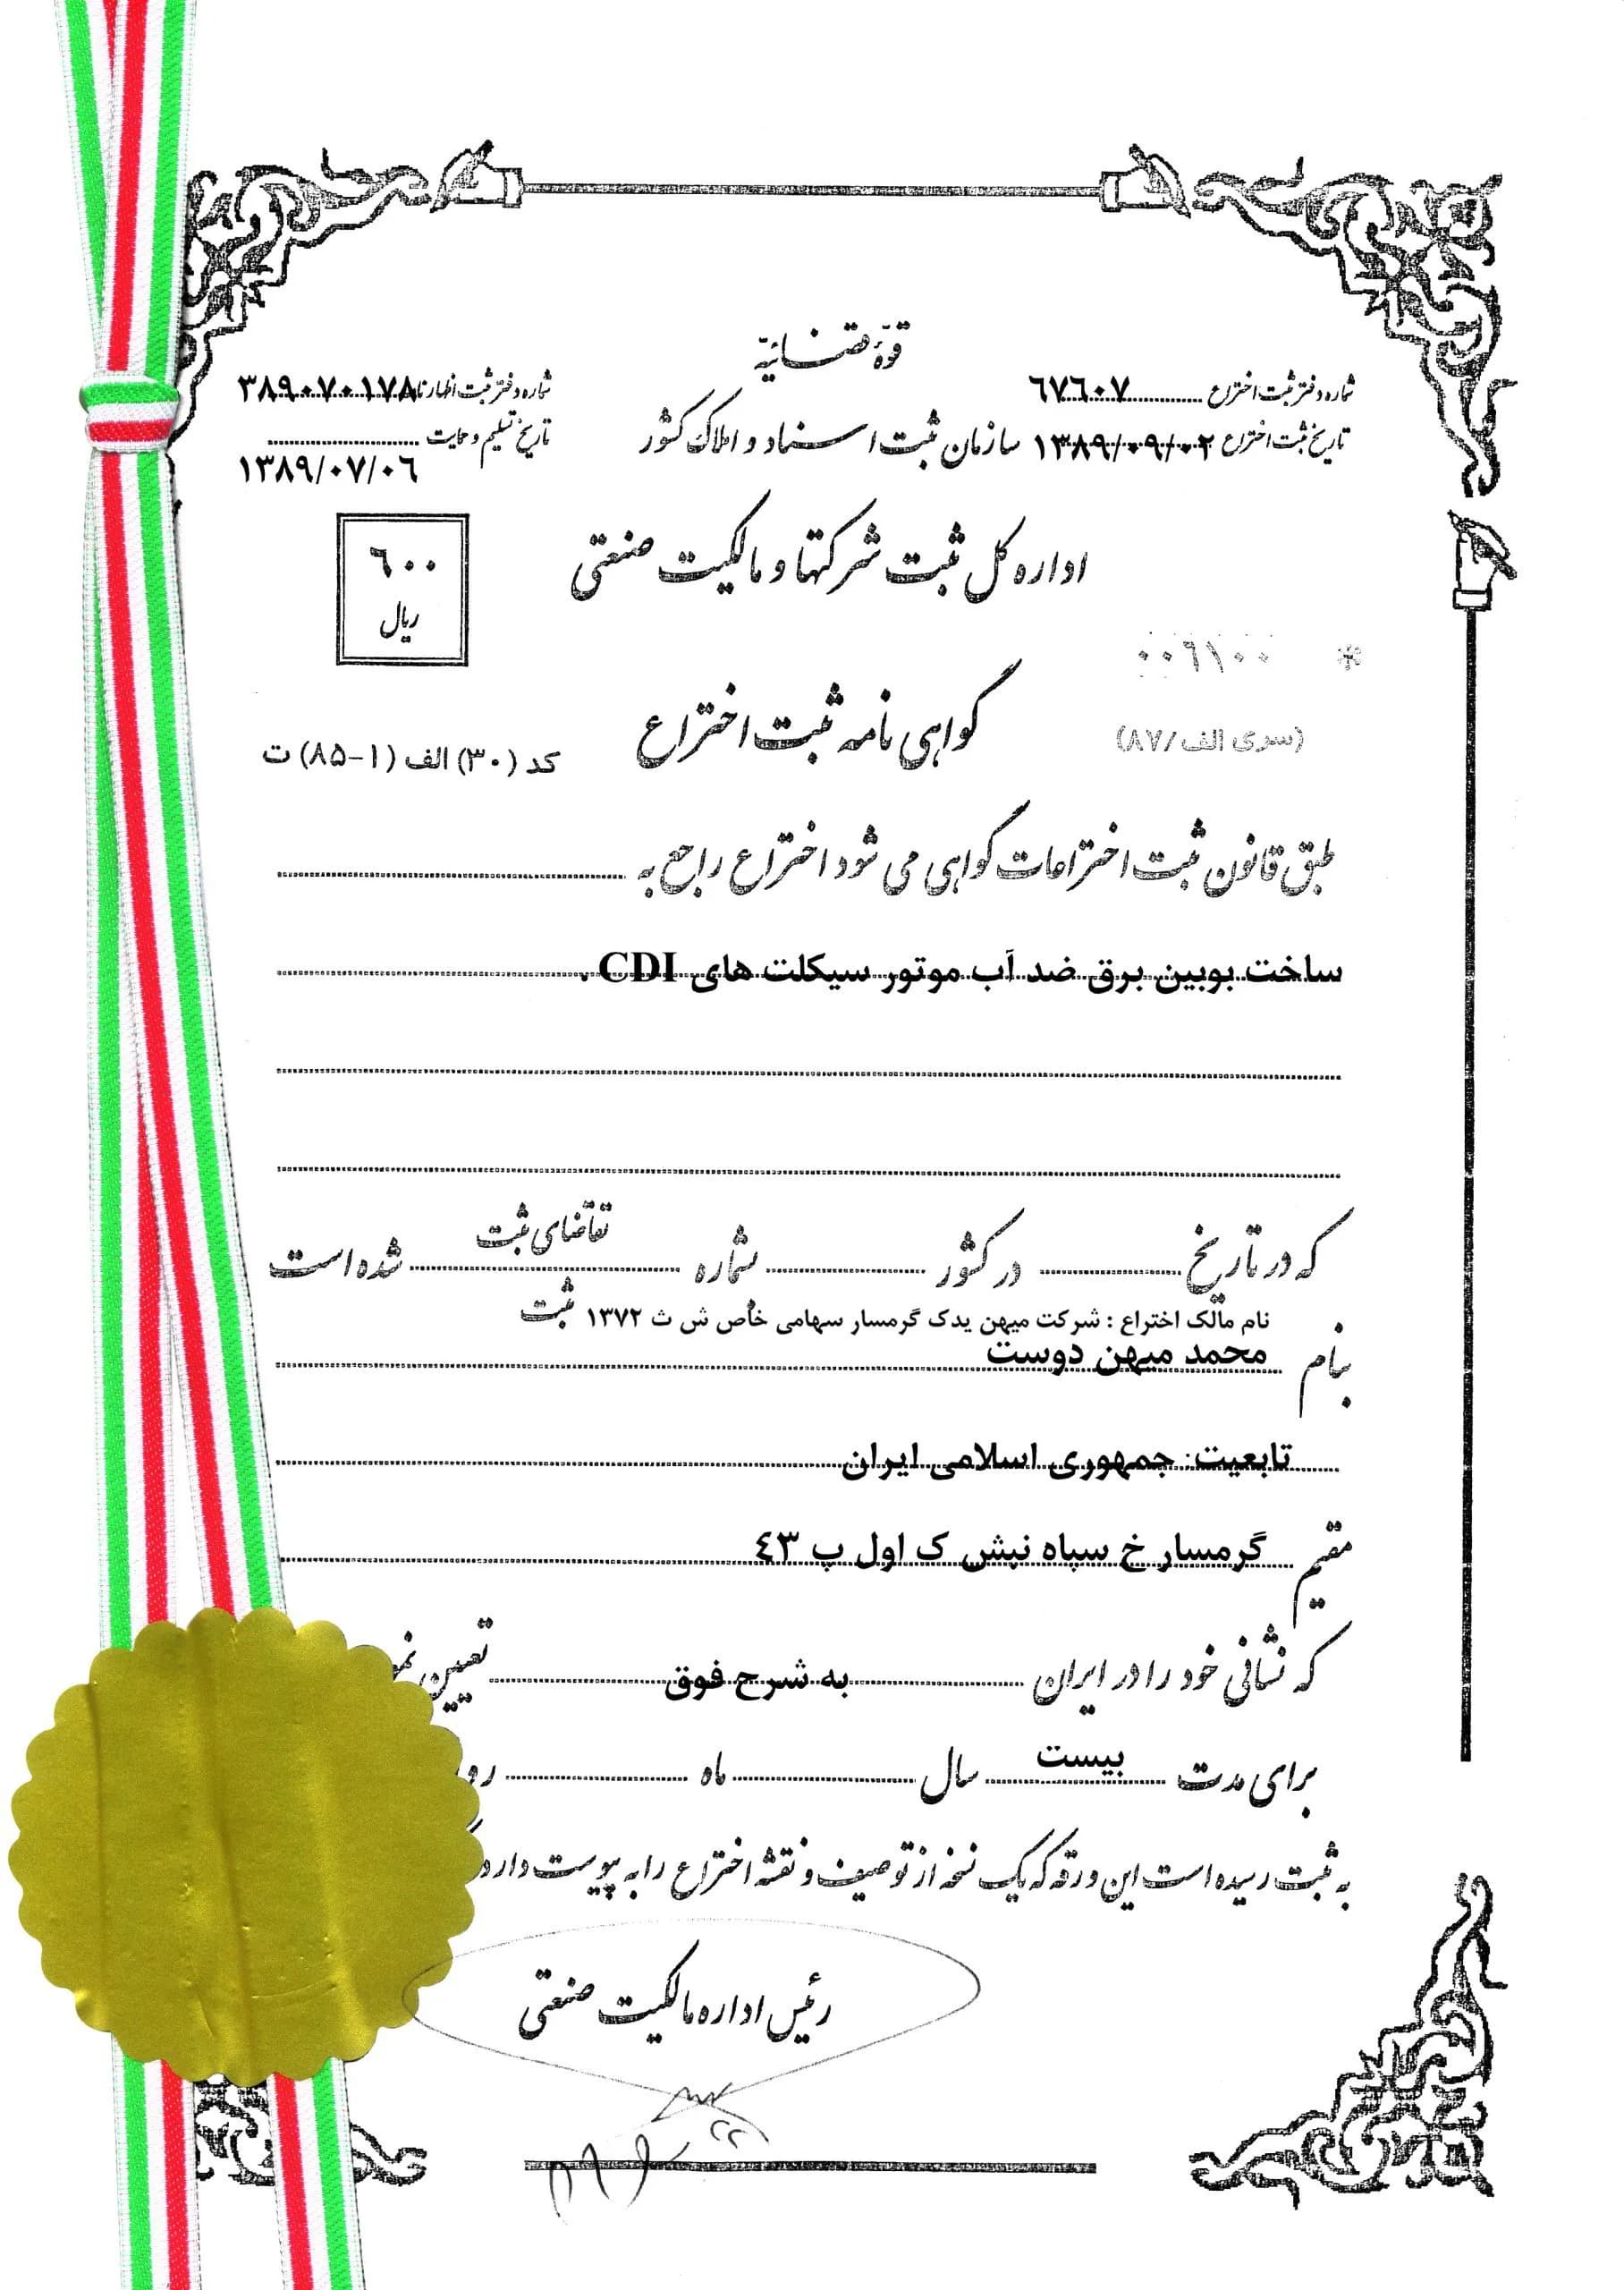 قوّۀ قضائیّه
شماره دفتر ثبت اختراع ٦٧٦٠٧
شماره دفتر ثبت اظهارنا ٣٨٩٠٧٠١٧٨
سازمان ثبت اسناد و املاک کشور
تاریخ ثبت اختراع ١٣٨٩/٠٩/٠٢
تاریخ تسلیم و حمایت
١٣٨٩/٠٧/٠٦
اداره کل ثبت شرکتها و مالکیت صنعتی
٦٠٠
ریال
* ٠٠٦١٠٠
(سری الف/٨٧)
گواهی نامه ثبت اختراع
کد (۳۰) الف (۱-۸۵) ت
طبق قانون ثبت اختراعات گواهی می شود اختراع راجع به
ساخت بوبین برق ضد آب موتور سیکلت های CDI .
که در تاریخ در کشور بشماره تقاضای ثبت شده است
ثبت
نام مالک اختراع : شرکت میهن یدک گرمسار سهامی خاص ش ث ١٣٧٢
بنام محمد میهن دوست
تابعیت: جمهوری اسلامی ایران
مقیم گرمسار خ سپاه نبش ک اول پ ٤٣
که نشانی خود را در ایران به شرح فوق تعیین
برای مدت بیست سال ماه
به ثبت رسیده است این ورقه که یک نسخه از توصیف و نقشه اختراع را به پیوست دارد
رئیس اداره مالکیت صنعتی